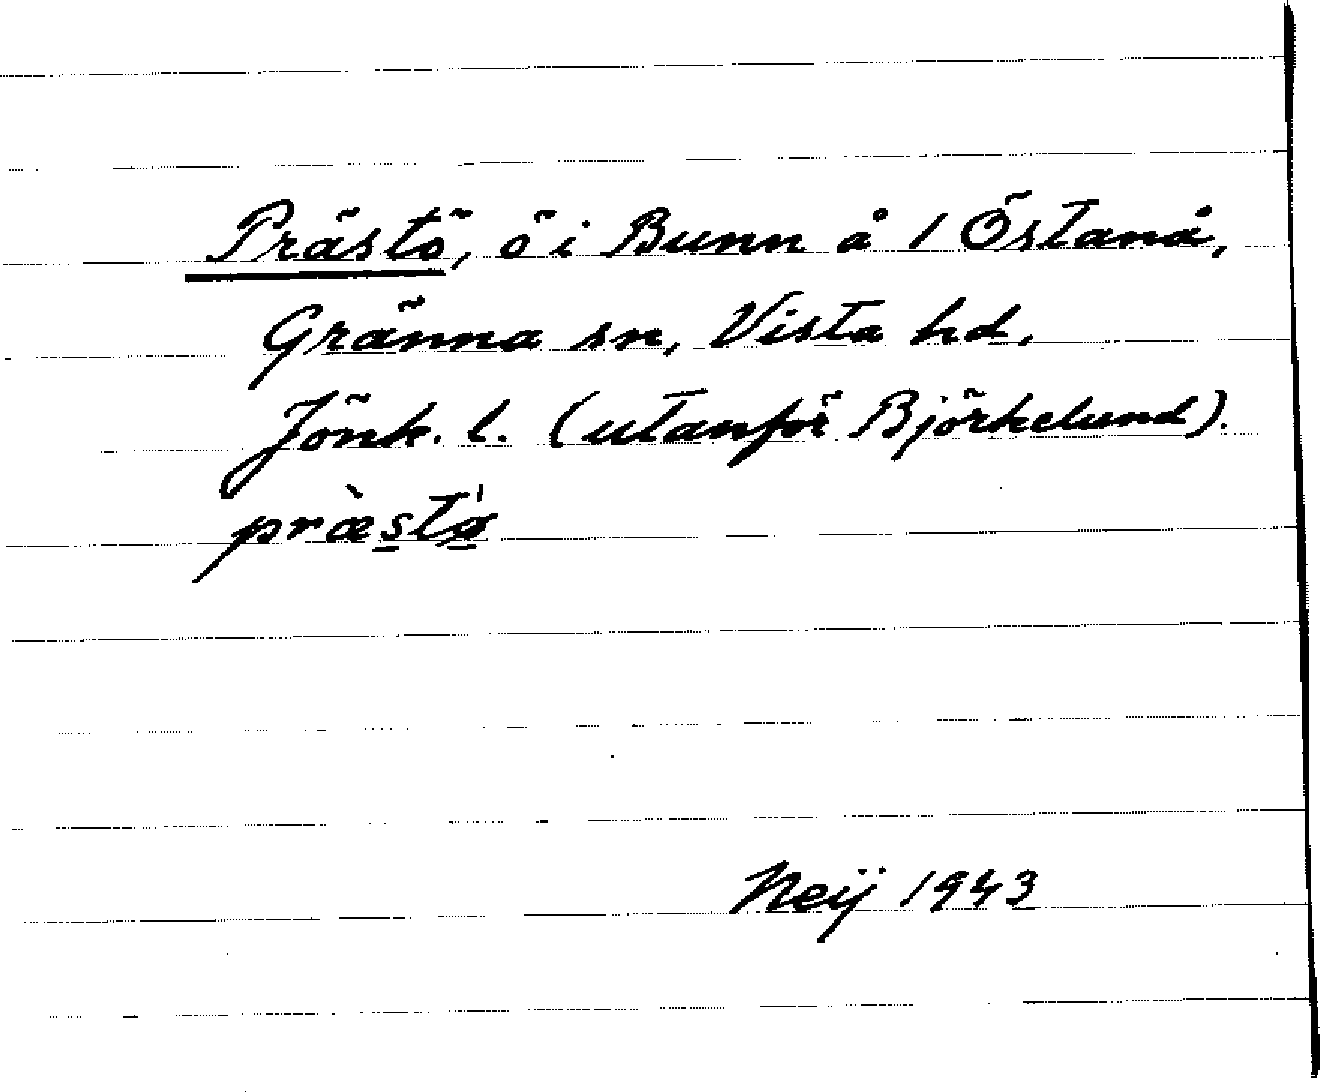 Prästö, ö i Bunn å 1 Östanå,
Gränna sn, Vista hd,
Jönk. l. (utanför Björkelund).
pràes̠tø̠̍
Neij 1943